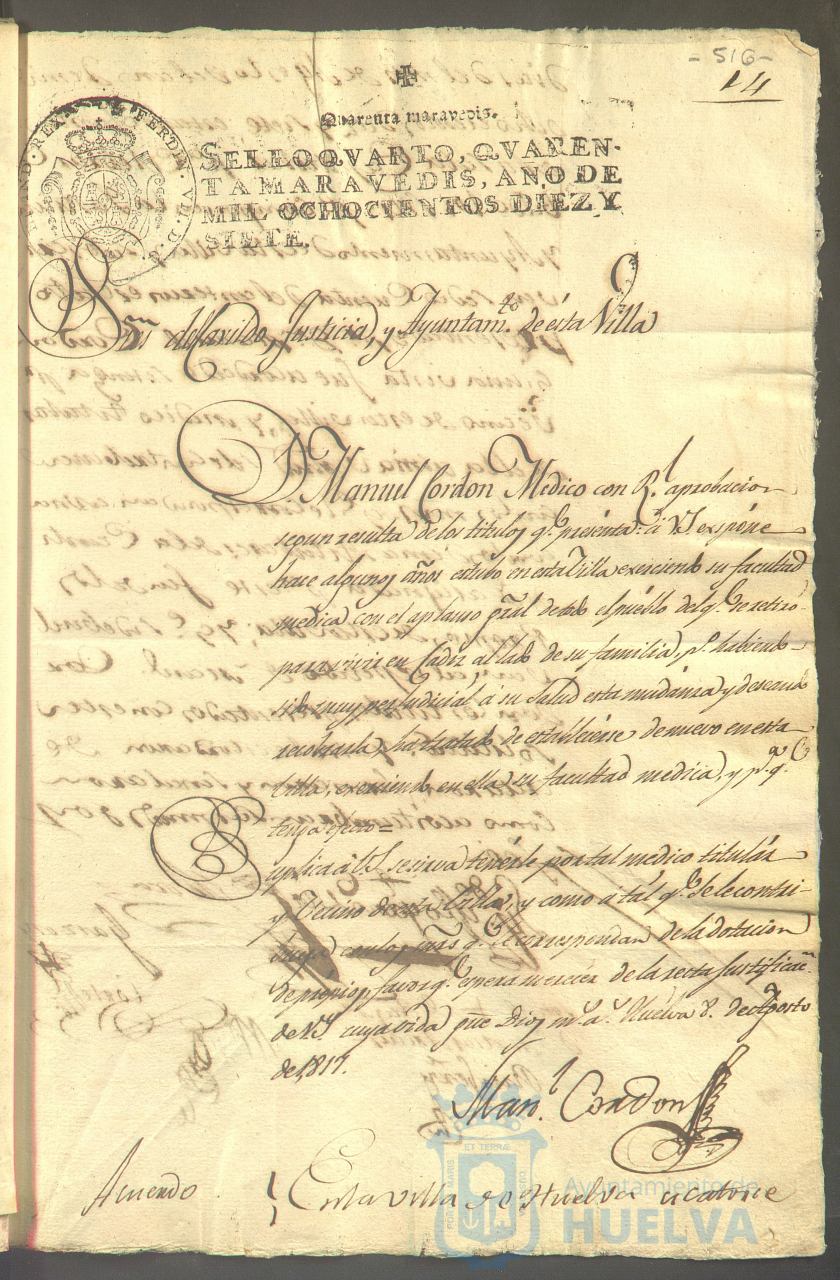 - 516 -
14
Quarenta maravedis.
SELLO QVARTO, QVAREN-
TA MARAVEDIS, AÑO DE
MIL OCHOCIENTOS DIEZ Y
SIETE.
Sres. del Cavildo, Justicia, y Ayuntamto. de ésta Villa
D. Manuel Cordon Medico con Rl. aprobacion
segun resulta de los titulos qe. presenta á VS expone
hace algunos años estubo en esta Villa exerciendo su facultad
medica con el aplauso gral de todo el pueblo del qe. se retiro
para vivir en Cadiz, al lado de su familia, pr. habiendo
sido muy perjudicial á su salud esta mudanza y deseando
recobrarla, ha tratado de establecerse de nuevo en esta
Villa, exerciendo en ella su facultad medica, y pa. qe.
tenga efecto =
Suplica á VS. se sirva tenerle por tal medico titulár
y Vecino de esta Villa, y como á tál qe. se le contri-
buya con los qe. le correspondan de la dotacion
de própios, favor qe. espera merecer de la recta justificacn.
de VS. cuya vida gue Dios ms. as. Huelva 8. de Agosto
de 1817.
Manl. Cordon
Acuerdo
En la villa de Huelva a catorce
ET TERRÆ
Ayuntamiento de
HUELVA